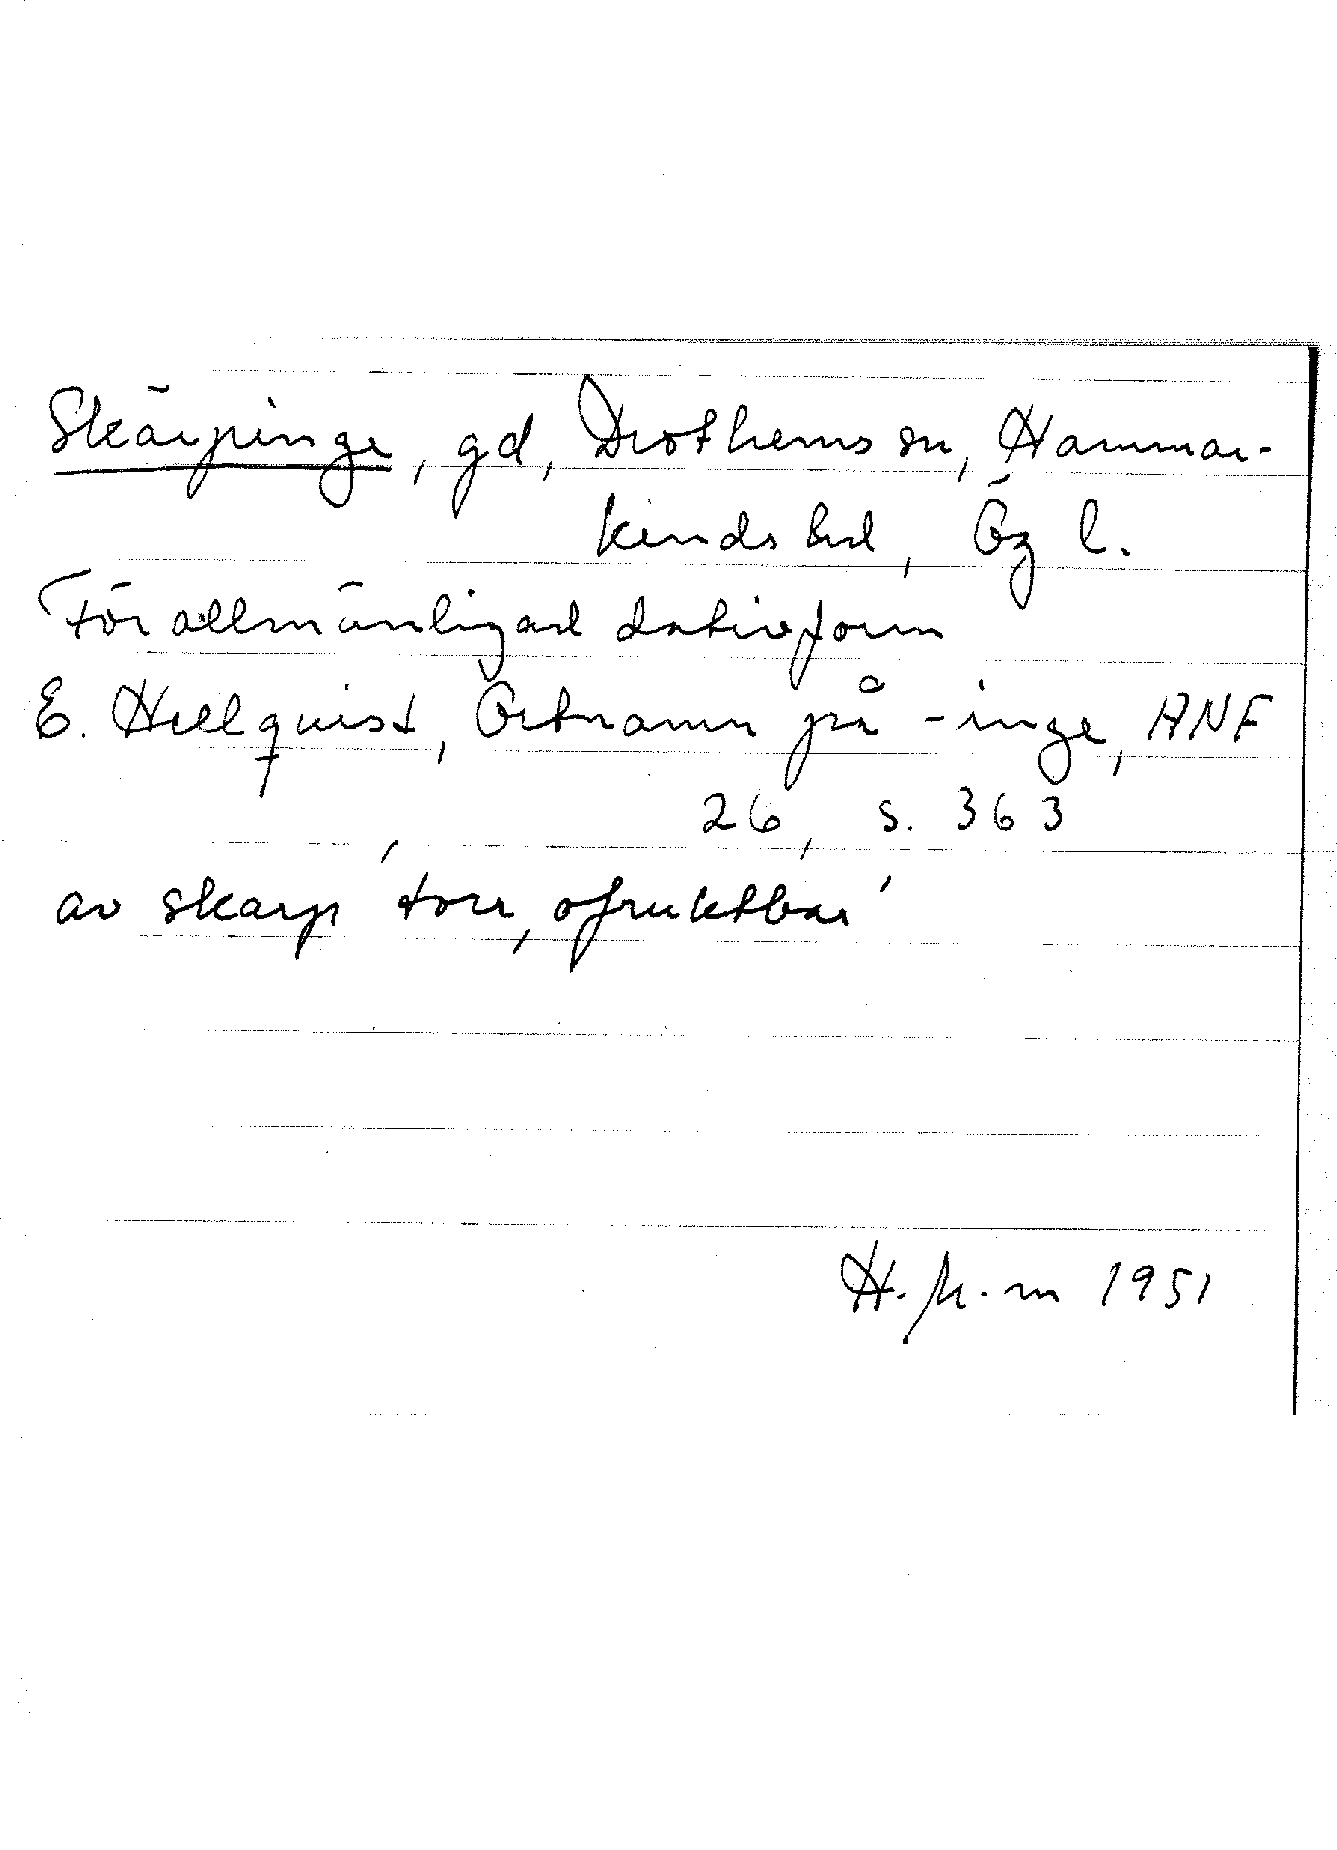 Skärpinge, gd, Drothems sn, Hammar-
kinds hd, Ög l.
Förallmänligad dativform
E. Hellquist, Ortnamn på -inge, ANF
26, s. 363
av skarp 'torr, ofruktbar'
H. . m 1951